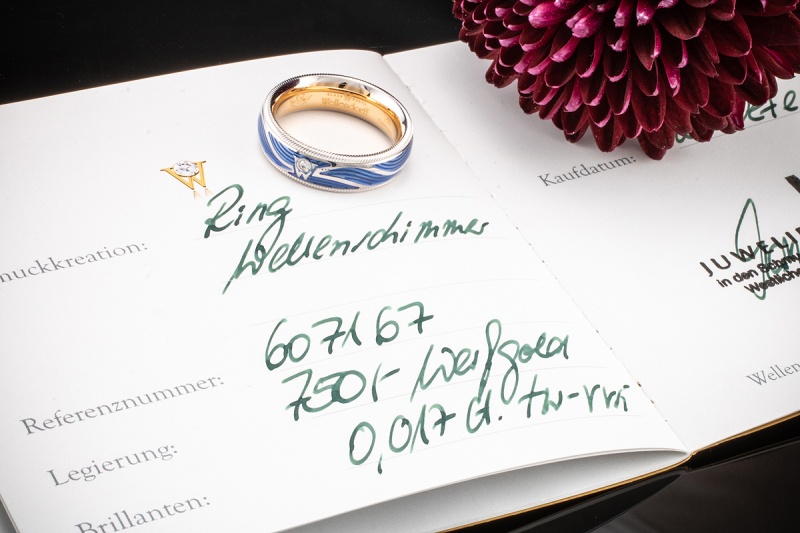 Ring
Wellenschimmer
nuckkreation:
607167
Referenznummer:
750/- Weißgold
Legierung:
0,017 ct. tw-vvsi
Brillanten:
Kaufdatum:
JUWELI
in den Schm
Westliche
Wellen